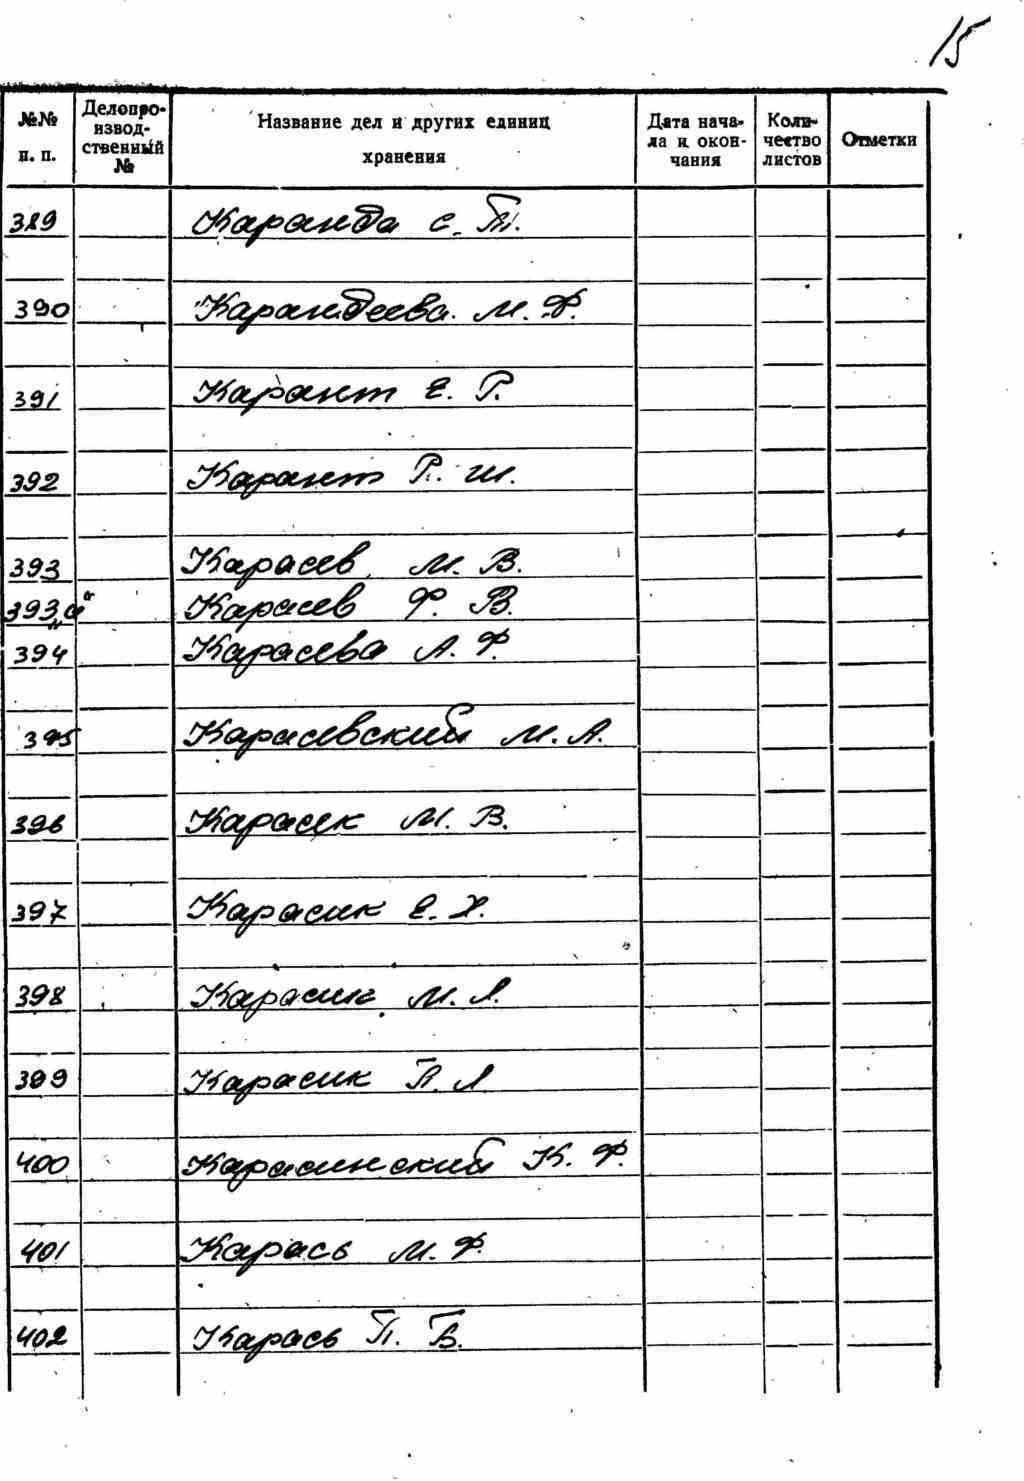 15
№№ п. п. Делопроизводственный № Название дел и других единиц хранения Дата начала и окончания Количество листов Отметки
389 Каранда с. П.
390 Карандеева М. Ф.
391 Карант Е. Р.
392 Карант Р. Ш.
393 Карасев М. В.
393„а“ Карасев Ф. В.
394 Карасева А. Ф.
395 Карасевский М. А.
396 Карасек М. В.
397 Карасик Е. Х.
398 Карасик М. Л.
399 Карасик П. Л
400 Карасинский К. Ф.
401 Карась М. Ф.
402 Карась П. Б.